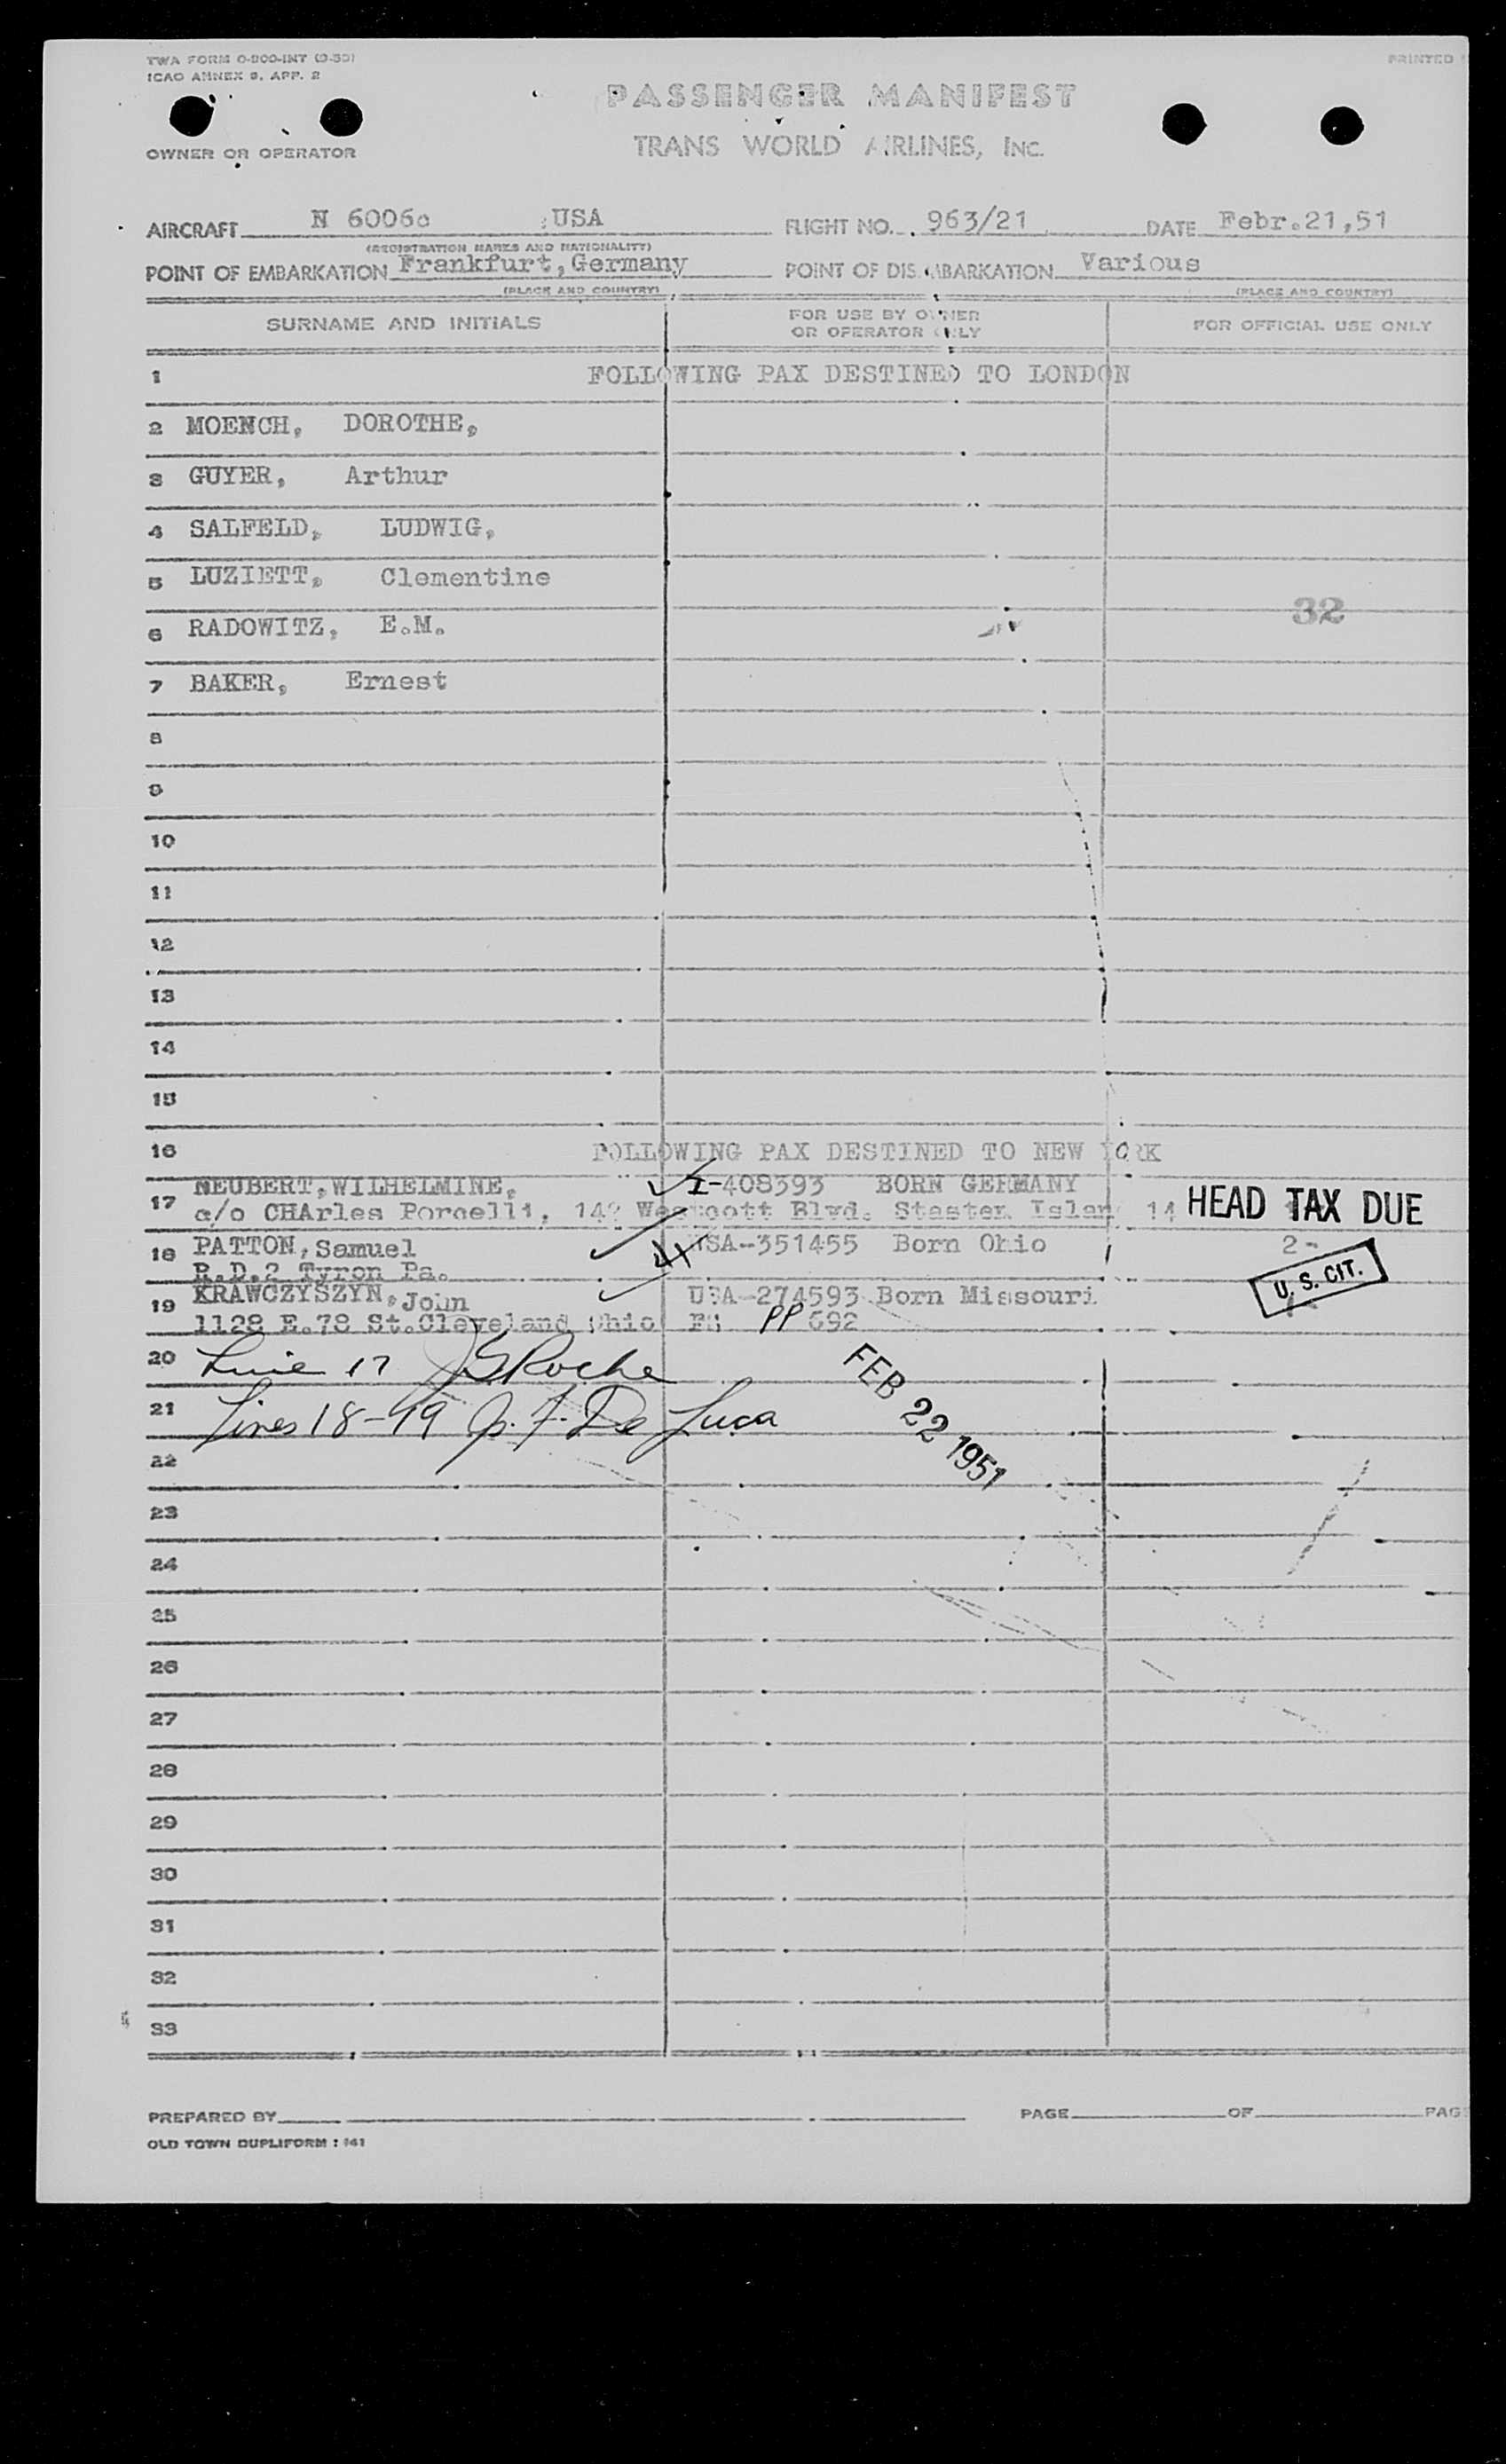 TWA FORM O-800-INT
ICAO ANNEX 9, APP. 2
PRINTED
PASSENGER MANIFEST
TRANS WORLD AIRLINES, INC.
OWNER OR OPERATOR
AIRCRAFT N 6006c USA FLIGHT NO. 963/21 DATE Febr.21,51
(REGISTRATION MARKS AND NATIONALITY)
POINT OF EMBARKATION Frankfurt, Germany POINT OF DISEMBARKATION Various
(PLACE AND COUNTRY) (PLACE AND COUNTRY)
SURNAME AND INITIALS FOR USE BY OWNER OR OPERATOR ONLY FOR OFFICIAL USE ONLY
1 FOLLOWING PAX DESTINED TO LONDON
2 MOENCH, DOROTHE,
3 GUYER, Arthur
4 SALFELD, LUDWIG,
5 LUZIETT, Clementine
32
6 RADOWITZ, E.M.
7 BAKER, Ernest
8
9
10
11
12
13
14
15
16 FOLLOWING PAX DESTINED TO NEW YORK
17 NEUBERT, WILHELMINE, I-408393 BORN GERMANY
c/o CHArles Porcelli, 142 Westcott Blvd. Stasten Islan 14 HEAD TAX DUE
18 PATTON, Samuel USA-351455 Born Ohio 2-
R.D.2 Tyron Pa.
U. S. CIT.
19 KRAWCZYSZYN, John USA-274593 Born Missouri
1128 E.78 St.Cleveland Ohio PP 692
20 Line 17 JGRoche
FEB 22 1951
21 Lines 18-19 J. F. De Luca
22
23
24
25
26
27
28
29
30
31
32
33
PREPARED BY PAGE OF PAG
OLD TOWN DUPLIFORM